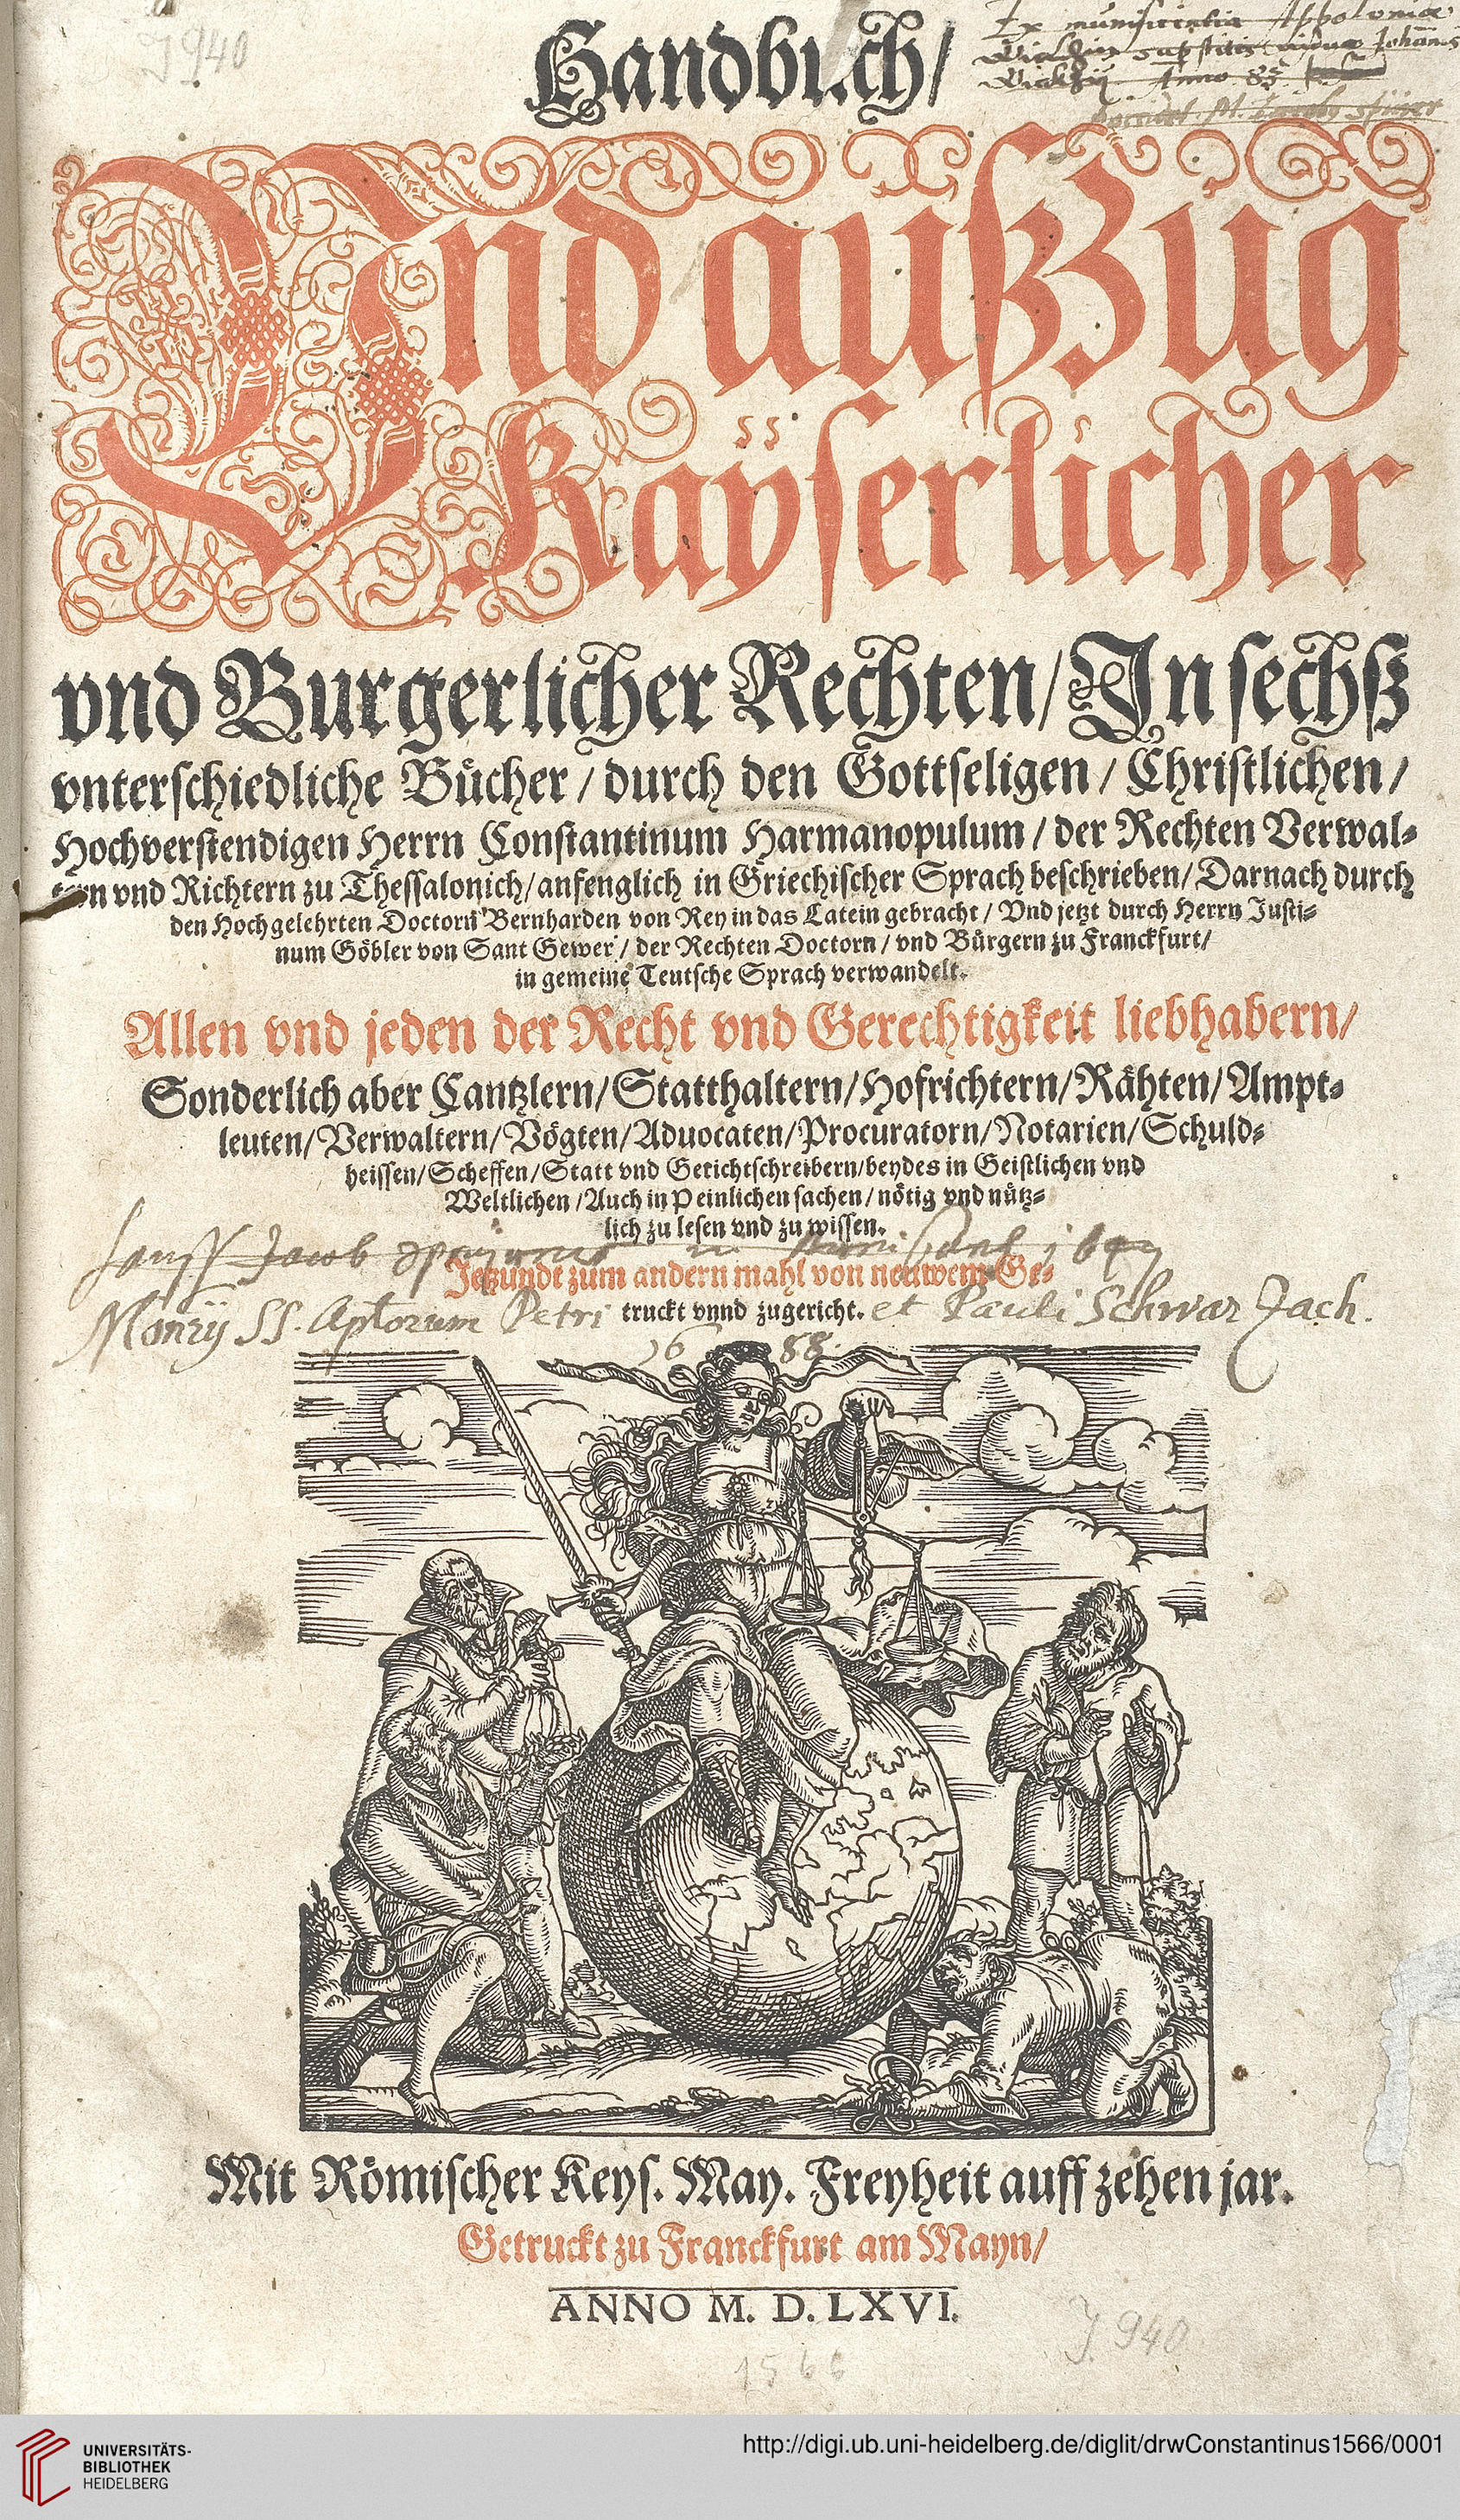 J 940
Handbuch/
Ex munificentia Appoloniae
Anno 85
Vnd außzug
Kayserlicher
vnd Burgerlicher Rechten/ Jn sechß
vnterschiedliche Bücher/ durch den Gottseligen/ Christlichen/
Hochverstendigen Herrn Constantinum Harmanopulum/ der Rechten Verwal-
tern vnd Richtern zu Thessalonich/ anfenglich in Griechischer Sprach beschrieben/ Darnach durch
den Hochgelehrten Doctorn Bernharden von Rey in das Latein gebracht/ Vnd jetzt durch Herrn Justi-
num Göbler von Sant Gewer/ der Rechten Doctorn/ vnd Bürgern zu Franckfurt/
in gemeine Teutsche Sprach verwandelt.
Allen vnd jeden der Recht vnd Gerechtigkeit liebhabern/
Sonderlich aber Cantzlern/ Statthaltern/ Hofrichtern/ Rähten/ Ampt-
leuten/ Verwaltern/ Vögten/ Aduocaten/ Procuratorn/ Notarien/ Schuld-
heissen/ Scheffen/ Statt vnd Gerichtschreibern/ beydes in Geistlichen vnd
Weltlichen/ Auch in Peinlichen sachen/ nötig vnd nütz-
lich zu lesen vnd zu wissen.
Jacob
Jetzundt zum andern mahl von neuwem Ge-
truckt vnnd zugericht.
Monrij SS. Aptorum Petri et Pauli Schwarzach.
1688
Mit Römischer Keys. May. Freyheit auff zehen jar.
Getruckt zu Franckfurt am Mayn/
ANNO M. D. LXVI.
J 940
1566
UNIVERSITÄTS-
BIBLIOTHEK
HEIDELBERG
http://digi.ub.uni-heidelberg.de/diglit/drwConstantinus1566/0001